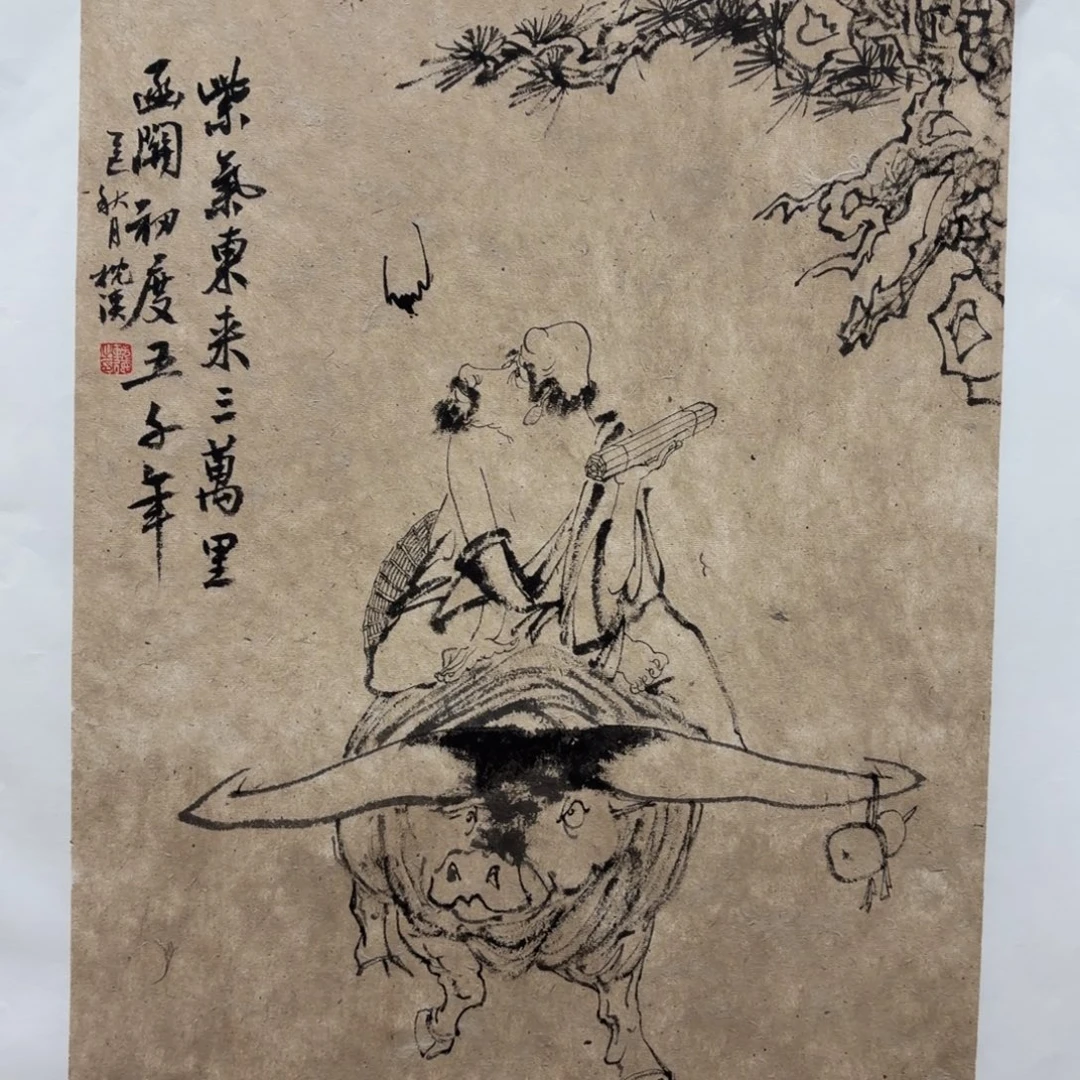 紫氣東来三萬里
函關初度五千年
秋月枕溪